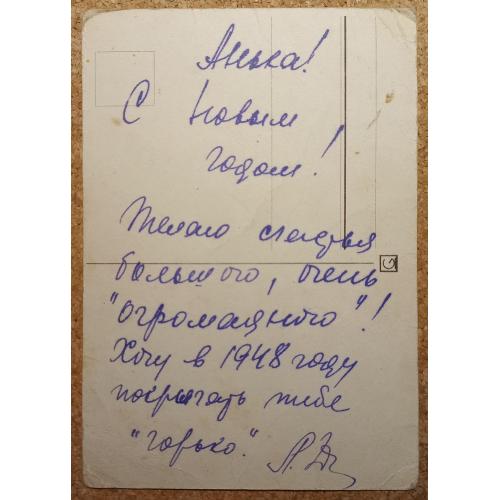 Анька!
С Новым
годом!
Желаю счастья
большого, очень
"огромаяного"!
Хочу в 1948 году
покрычать тебе
"горько."